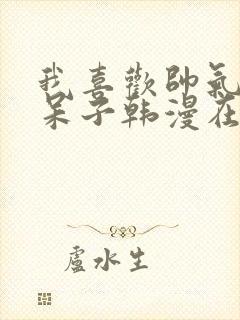 我喜歡帥氣
呆子韩漫在
盧水生